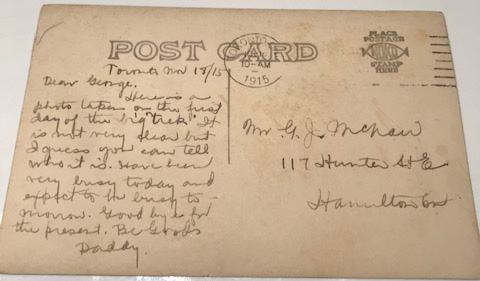 POST CARD
TORONTO
10-AM
1915
PLACE
POSTAGE
NOKO
STAMP
HERE
Toronto Nov 18/15
Dear George,
Here is a
photo taken on the first
day of the big "trek." It
is not very clear but
I guess you can tell
who it is. Have been
very busy today and
expect to be busy to-
morrow. Good bye for
the present. Be Good
Daddy.
Mr G. J. McNair
117 Hunter St E
Hamilton Ont